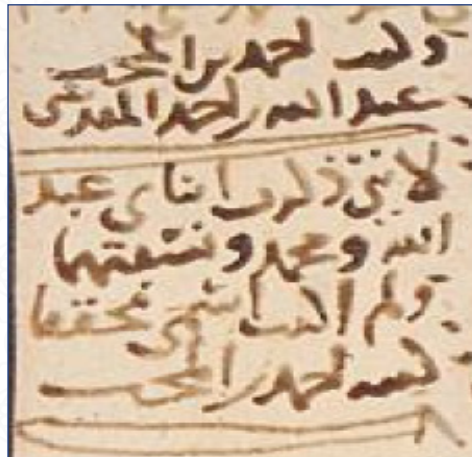 وكتب محمد بن المحب
عبد الله بن احمد المقدسي
لانني ذكرت ابناي عبد
الله ومحمد ونسبتهما
ولم اكتب اسمي محققا
كتبه محمد بن المحب